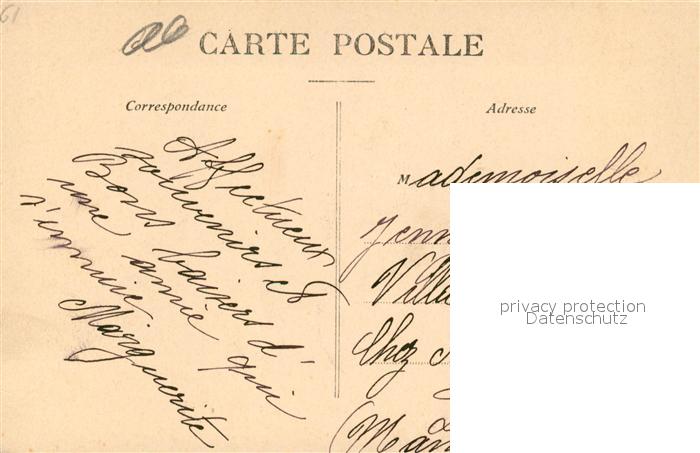 61
CARTE POSTALE
Correspondance
Affectueux
souvenirs et
Bons baisers d'
une amie qui
s'ennuie
Marguerite
Adresse
Mademoiselle
Jenn
Villa
Chez
(Man
privacy protection
Datenschutz